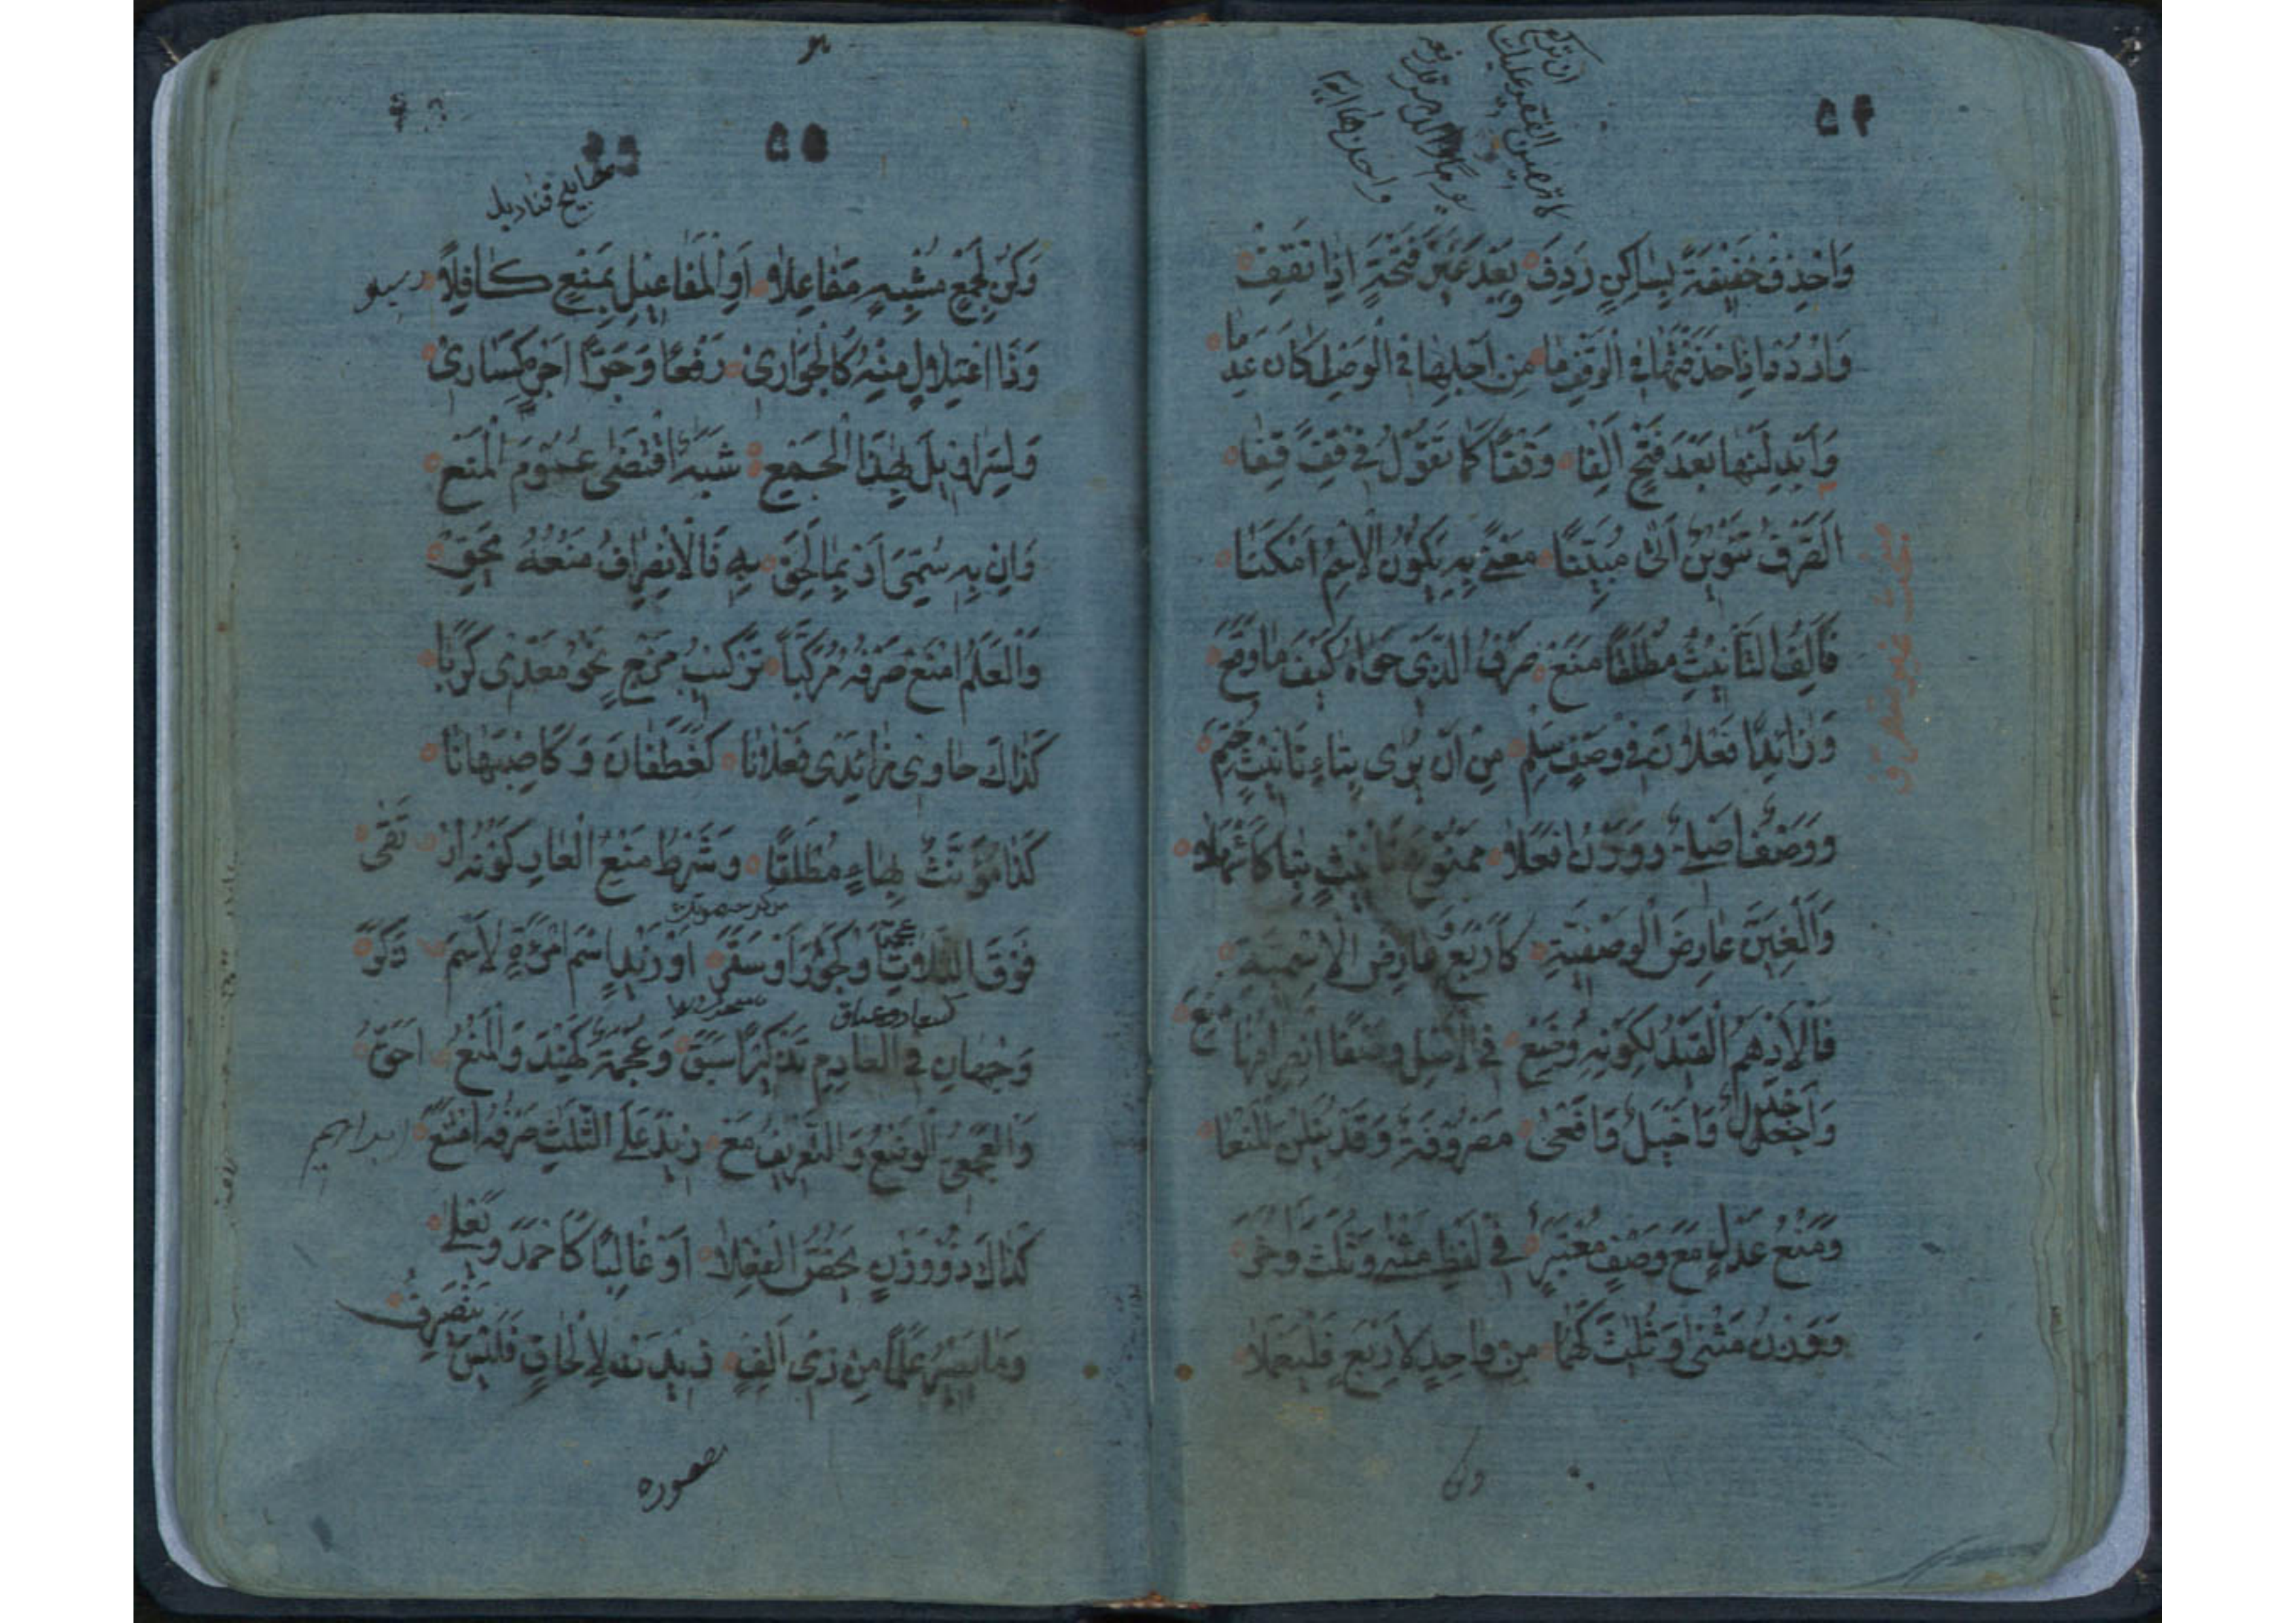 ۵۴
ان تركع
لا تهين الفقير علك
يوما والدهر قد رفعه
وَاحْذِفْ خَفِيفَةً لِسَاكِنٍ رَدِفَ وَبَعْدَ غَيْرِ فَتْحَةٍ اِذَا تَقِفُ
وَارْدُدْ اِذَا حَذَفْتَهَا فِي الْوَقْفِ مَا مِنْ اَجْلِهَا فِي الْوَصْلِ كَانَ عُدِمَا
وَاَبْدِلَنْهَا بَعْدَ فَتْحٍ اَلِفَا وَقْفًا كَمَا تَقُولُ فِي قِفَنْ قِفَا
اَلصَّرْفُ تَنْوِينٌ اَتٰى مُبَيِّنًا مَعْنًى بِهِ يَكُونُ الْاِسْمُ اَمْكَنَا
مبحث غير منصرف
فَاَلِفُ التَّأْنِيثِ مُطْلَقًا مَنَعْ صَرْفَ الَّذِي حَوَاهُ كَيْفَ مَا وَقَعْ
وَزَائِدَا فَعْلَانَ فِي وَصْفٍ سَلِمْ مِنْ اَنْ يُرٰى بِتَاءِ تَانِيثٍ خُتِمْ
وَوَصْفٌ اَصْلِيٌّ وَوَزْنُ اَفْعَلَا مَمْنُوعَ تَانِيثٍ بِتَا كَاَشْهَلَا
وَاَلْغِيَنَّ عَارِضَ الْوَصْفِيَّةِ كَاَرْبَعٍ وَعَارِضَ الْاِسْمِيَّةِ
فَالْاَدْهَمُ الْقَيْدُ لِكَوْنِهِ وُضِعْ فِي الْاَصْلِ وَصْفًا انْصِرَافُهُ مُنِعْ
وَاَجْدَلٌ وَاَخْيَلٌ وَاَفْعٰى مَصْرُوفَةٌ وَقَدْ يَنَلْنَ الْمَنْعَا
وَمَنْعُ عَدْلٍ مَعَ وَصْفٍ مُعْتَبَرْ فِي لَفْظِ مَثْنٰى وَثُلَاثَ وَاُخَرْ
وَوَزْنُ مَثْنٰى وَثُلَاثَ كَهُمَا مِنْ وَاحِدٍ لِاَرْبَعٍ فَلْيُعْلَمَا
وكن
۵۵
مصابيح قناديل
وَكُنْ لِجَمْعٍ مُشْبِهٍ مَفَاعِلَا اَوِ الْمَفَاعِيلِ بِمَنْعٍ كَافِلَا
وَذَا اعْتِلَالٍ مِنْهُ كَالْجَوَارِي رَفْعًا وَجَرًّا اَجْرِهِ كَسَارِي
وَلِسَرَاوِيلَ بِهٰذَا الْجَمْعِ شَبَهٌ اقْتَضٰى عُمُومَ الْمَنْعِ
وَاِنْ بِهِ سُمِّيَ اَوْ بِمَا لَحِقَ بِهِ فَالْاِنْصِرَافُ مَنْعُهُ يَحِقّ
وَالْعَلَمَ امْنَعْ صَرْفَهُ مُرَكَّبًا تَرْكِيبَ مَزْجٍ نَحْوُ مَعْدِي كَرِبَا
كَذَاكَ حَاوِي زَائِدَيْ فَعْلَانَا كَغَطَفَانَ وَكَاَصْبَهَانَا
كَذَا مُؤَنَّثٌ بِهَاءٍ مُطْلَقًا وَشَرْطُ مَنْعِ الْعَارِ كَوْنُهُ ارْتَقٰى
فَوْقَ الثَّلَاثِ اَوْ كَجُورَ اَوْ سَقَرْ اَوْ زَيْدٍ اسْمَ امْرَءَةٍ لَا اسْمَ ذَكَرْ
وَجْهَانِ فِي الْعَادِمِ تَذْكِيرًا سَبَقْ وَعُجْمَةً كَهِنْدَ وَالْمَنْعُ اَحَقّ
وَالْعَجَمِيُّ الْوَضْعِ وَالتَّعْرِيفِ مَعْ زَيْدٍ عَلَى الثَّلٰثِ صَرْفُهُ امْتَنَعْ ابراهيم
كَذَاكَ ذُو وَزْنٍ يَخُصُّ الْفِعْلَا اَوْ غَالِبًا كَاَحْمَدَ وَيَعْلٰى
وَمَا يَصِيرُ عَلَمًا مِنْ ذِي اَلِفٍ زِيدَتْ لِاِلْحَاقٍ فَلَيْسَ يَنْصَرِفُ
مقصوره